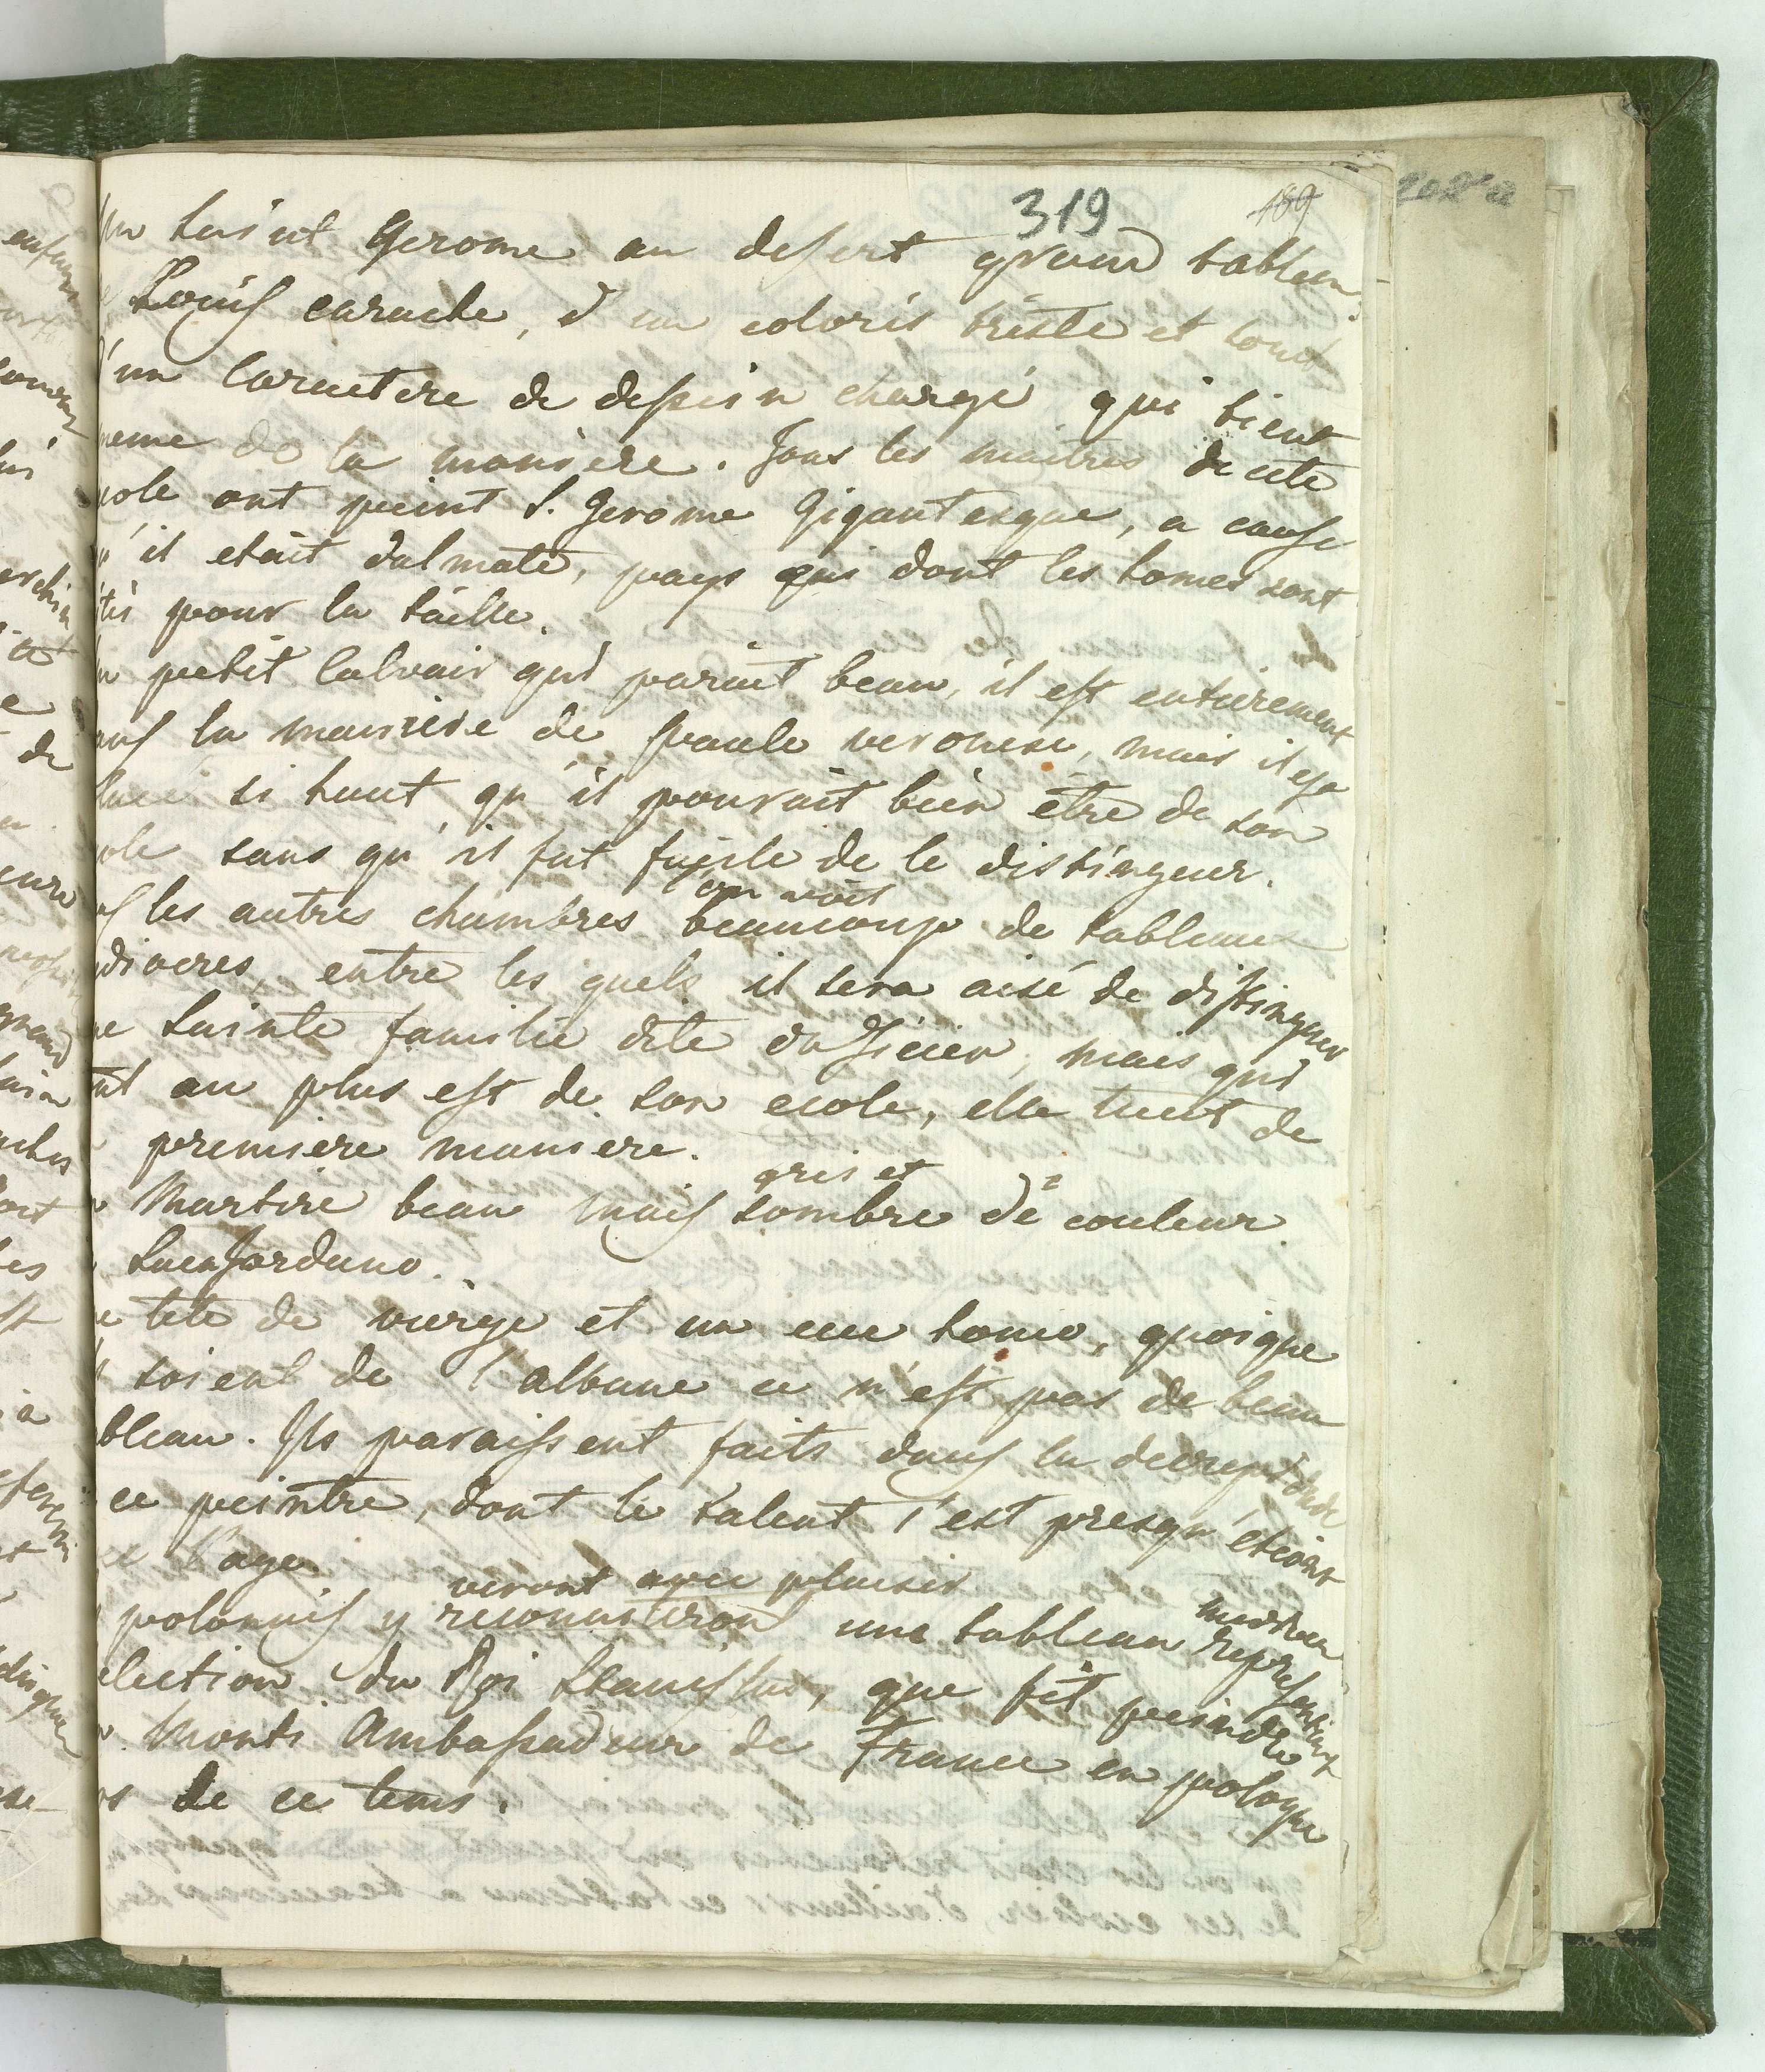 319 189
un saint Gerome au desert grand tableau
Louis carache, d'un coloris triste et tout
d'un caractere de dessein chargé qui tient
meme de la maniere. Tous les maitres de cete
cole ont peint S. Gerome Gigantesque, a cause
qu'il etait dalmate, pays qui dont les homes sont
tés pour la taille.
un petit Calvair qui parait beau, il est entierement
ans la maniere de paule veronese, mais il est
lacé si haut qu'il pourait bien être de son
ole sans qu'il fut facile de le distinguer.
on voit
s les autres chambres beaucoup de tableaux
diocres, entre les quels il sera aisé de distinguer
ne Sainte famille dite du Ticien, mais qui
nt au plus est de son ecole, elle tient de
premiere maniere.
gris et
Martire beau mais sombre de couleur
Luca Jordano.
e tete de vierge et un ecce homo, quoique
s soient de l'albane ce n'est pas de beau
bleau. Ils paraissent faits dans la decrepitude
ce peintre, dont le talent s'est presqu'eteint
l'age.
veront avec plaisir
polonais y reconnaitront une tableau representant
election du Roi Stanislas, que fit peindre
Monti Ambassadeur de France en pologne
s de ce tems.